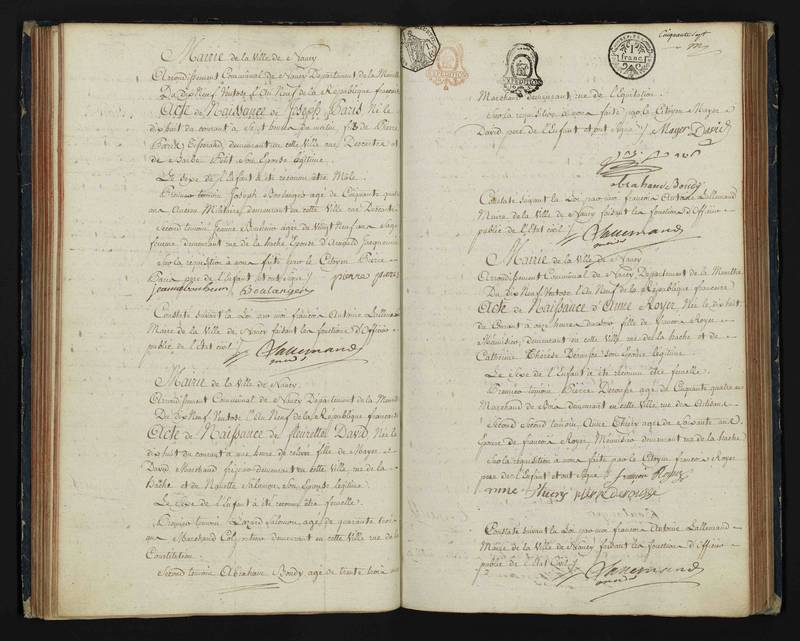 Mairie de la Ville de Nancy
Arrondissement Communal de Nancy Département de la Meurthe
Du dix Neuf Ventose l'An Neuf de la République francaise
Acte de Naissance de Joseph Paris Né le
dix huit du courant à Sept heures du matin, fils de Pierre
Paris demeurant en cette Ville rue
et de Barbe Petit son Epouse légitime.
Le Sexe de l'Enfant à été reconnu être Male.
Premier temoin Joseph Boulanger agé de Cinquante quatre
ans Ancien Militaire, demeurant en cette Ville rue
Second temoin Jeanne agé de Vingt Neuf ans Sage
femme demeurant rue de la hache Epouse d'
Sur la requisition à nous faite par le Citoyen Pierre
Paris pere de l'Enfant et ont Signé
pierre paris
Boulanger
Constaté suivant la Loi par moi françois Antoine Lallemand
Maire de la Ville de Nancy faisant les fonctions d'Officier
public de l'Etat civil
Lallemand
Mairie de la Ville de Nancy
Arrondissement Communal de Nancy Département de la Meurthe
Du dix Neuf Ventose l'An Neuf de la République francaise
Acte de Naissance de fleurette David Née le
dix huit du courant à une heure de fille de Mayer
David Marchand fripier demeurant en cette Ville rue de la
hache et de Salomon, son Epouse légitime
Le Sexe de l'Enfant à été reconnu être femelle.
Premier temoin Lazard Salomon, agé de quarante trois
ans Marchand Colporteur demeurant en cette Ville rue de la
Constitution.
Second temoin Abraham Bondy agé de trente trois ans
Cinquante Sept
1 franc
Marchand demeurant rue de l'Equitation.
Sur la requisition à nous faite par le Citoyen Mayer
David pere de l'Enfant et ont Signé Mayer David
abraham Bondy
Constaté suivant la Loi par moi françois Antoine Lallemand
Maire de la Ville de Nancy faisant les fonctions d'Officier
public de l'Etat civil
Lallemand
Mairie de la Ville de Nancy
Arrondissement Communal de Nancy Département de la Meurthe
Du dix Neuf Ventose l'An Neuf de la République francaise
Acte de Naissance d'Anne Royer, Née le dix huit
du Courant à onze heures fille de francois Royer
Menuisier, demeurant en cette Ville rue de la hache et de
Catherine Thérèse Derousse son Epouse légitime.
Le Sexe de l'Enfant à été reconnu être femelle.
Premier temoin Pierre Derousse agé de Cinquante quatre ans
Marchand de Bois demeurant en cette Ville rue des Artisans
Second temoin Anne Thiery agé de Soixante ans
Epouse de francois Royer, Menuisier demeurant rue de la hache
Sur la requisition à nous faite par le Citoyen francois Royer
pere de l'Enfant et ont Signé françois Royer
anne thiery pierre derousse
Constaté suivant la Loi par moi francois Antoine Lallemand
Maire de la Ville de Nancy faisant les fonctions d'Officier
public de l'Etat Civil
Lallemand